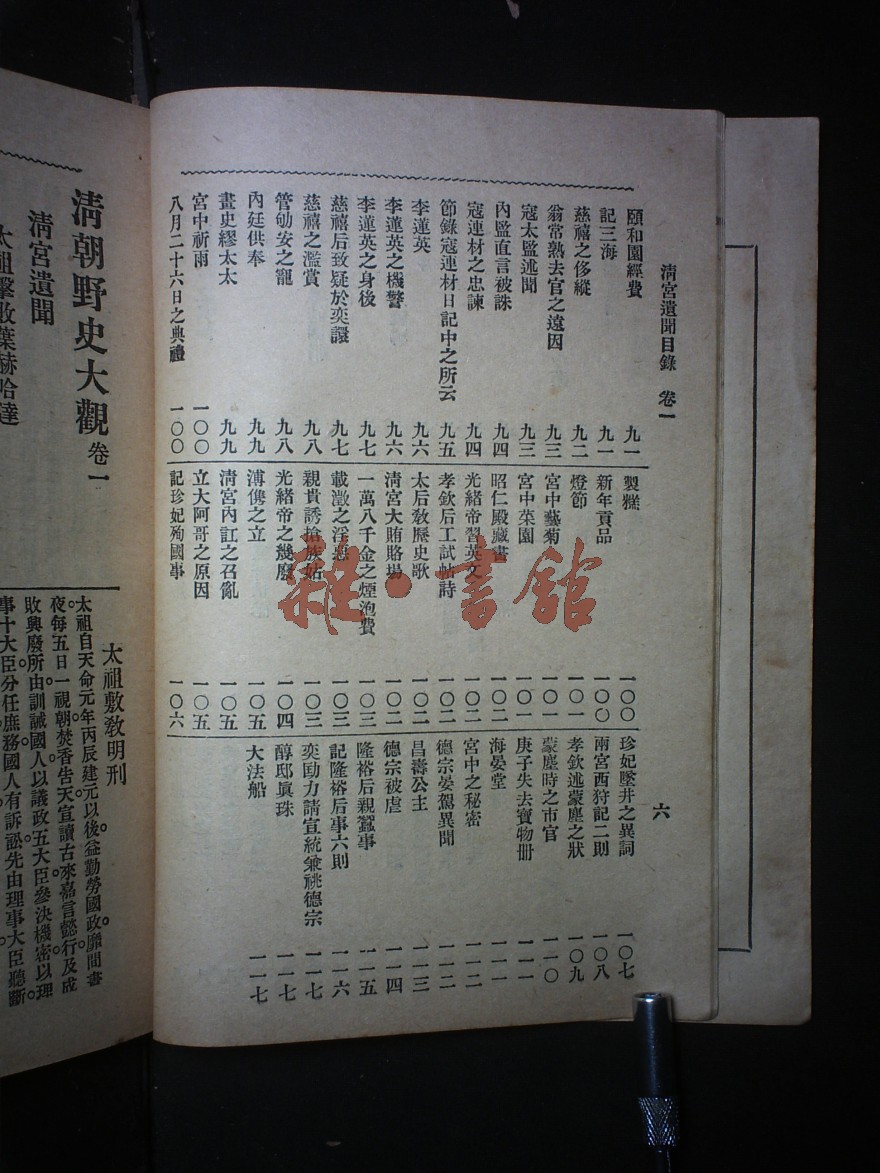 清宮遺聞目錄 卷一
六
頤和園經費 九一
記三海 九一
慈禧之侈縱 九二
翁常熟去官之遠因 九三
寇太監述聞 九三
內監直言被誅 九四
寇連材之忠諫 九四
節錄寇連材日記中之所云 九五
李蓮英 九六
李蓮英之機警 九六
李蓮英之身後 九七
慈禧后致疑於奕譞 九七
慈禧之濫賞 九八
管劬安之寵 九八
內廷供奉 九九
畫史繆太太 九九
宮中祈雨 一〇〇
八月二十六日之典禮 一〇〇
製糕 一〇〇
新年貢品 一〇〇
燈節 一〇一
宮中藝菊 一〇一
宮中菜園 一〇一
昭仁殿藏書 一〇二
光緒帝習英文 一〇二
孝欽后工試帖詩 一〇二
太后教歷史歌 一〇二
清宮大賄賂場 一〇二
一萬八千金之煙泡費 一〇三
載澂之淫惡 一〇三
親貴誘搶族姑 一〇三
光緒帝之幾廢 一〇四
溥儁之立 一〇五
清宮內訌之召亂 一〇五
立大阿哥之原因 一〇五
記珍妃殉國事 一〇六
珍妃墜井之異詞 一〇七
兩宮西狩記二則 一〇八
孝欽述蒙塵之狀 一〇九
蒙塵時之市官 一一〇
庚子失去寶物冊 一一一
海晏堂 一一一
宮中之秘密 一一二
德宗晏駕異聞 一一二
昌壽公主 一一三
德宗被虐 一一四
隆裕后親蠶事 一一五
記隆裕后事六則 一一六
奕劻力請宣統兼祧德宗 一一七
醇邸眞珠 一一七
大法船 一一七
清朝野史大觀 卷一
清宮遺聞
太祖擊敗葉赫哈達
太祖敷敎明刑
太祖自天命元年丙辰建元以後。益勤勞國政。靡間晝
夜。每五日一視朝。焚香告天。宣讀古來嘉言懿行及成
敗興廢所由。訓誡國人。以議政五大臣參決機密。以理
事十大臣分任庶務。國人有訴訟。先由理事大臣聽斷
雜·書館